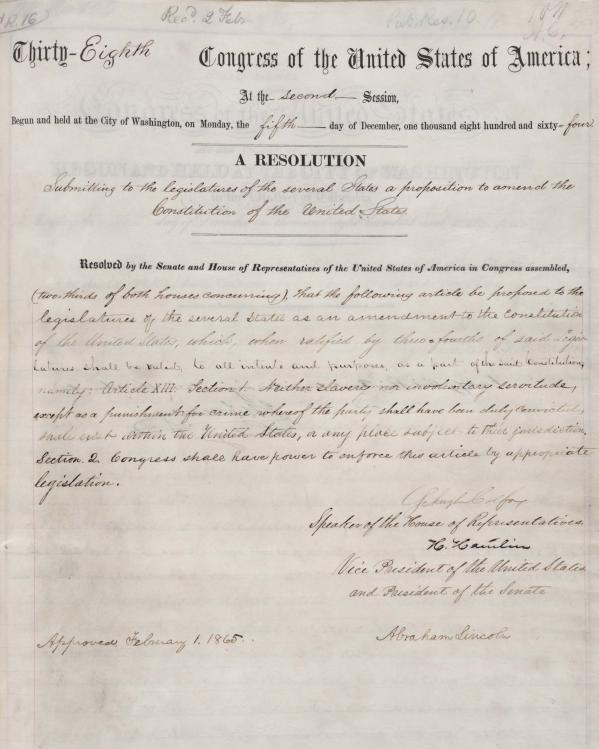 R. 16
Recd. 2 Feb
Pub. Res. 10.
Thirty-Eighth Congress of the United States of America;
At the second Session,
Begun and held at the City of Washington, on Monday, the fifth day of December, one thousand eight hundred and sixty-four
A RESOLUTION
Submitting to the legislatures of the several States a proposition to amend the
Constitution of the United States.
Resolved by the Senate and House of Representatives of the United States of America in Congress assembled,
(two-thirds of both houses concurring), that the following article be proposed to the
legislatures of the several States as an amendment to the Constitution
of the United States, which, when ratified by three-fourths of said Legis-
latures, shall be valid, to all intents and purposes, as a part of the said Constitution,
namely: Article XIII. Section 1. Neither slavery nor involuntary servitude,
except as a punishment for crime whereof the party shall have been duly convicted,
shall exist within the United States, or any place subject to their jurisdiction.
Section 2. Congress shall have power to enforce this article by appropriate
legislation.
Schuyler Colfax
Speaker of the House of Representatives.
H. Hamlin
Vice President of the United States,
and President of the Senate
Approved, February 1. 1865.
Abraham Lincoln